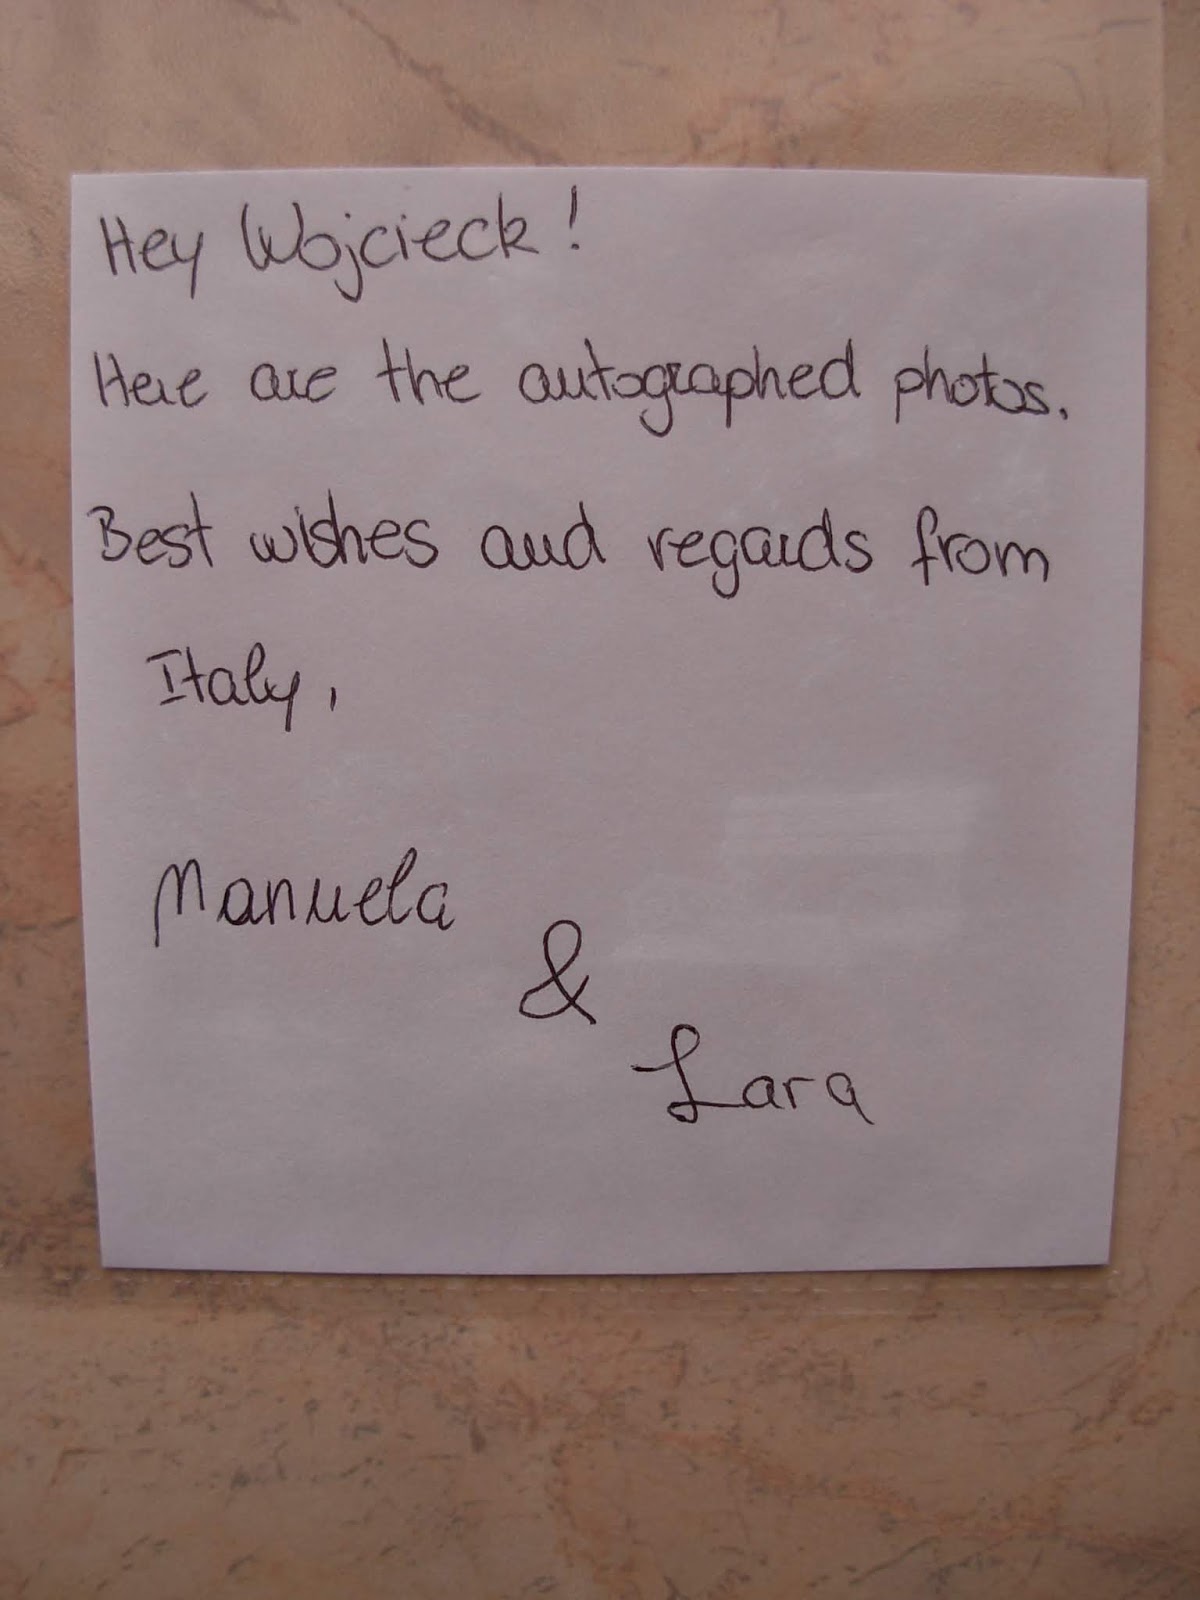 Hey Wojcieck!
Here are the autographed photos.
Best wishes and regards from
Italy,
Manuela
&
Lara